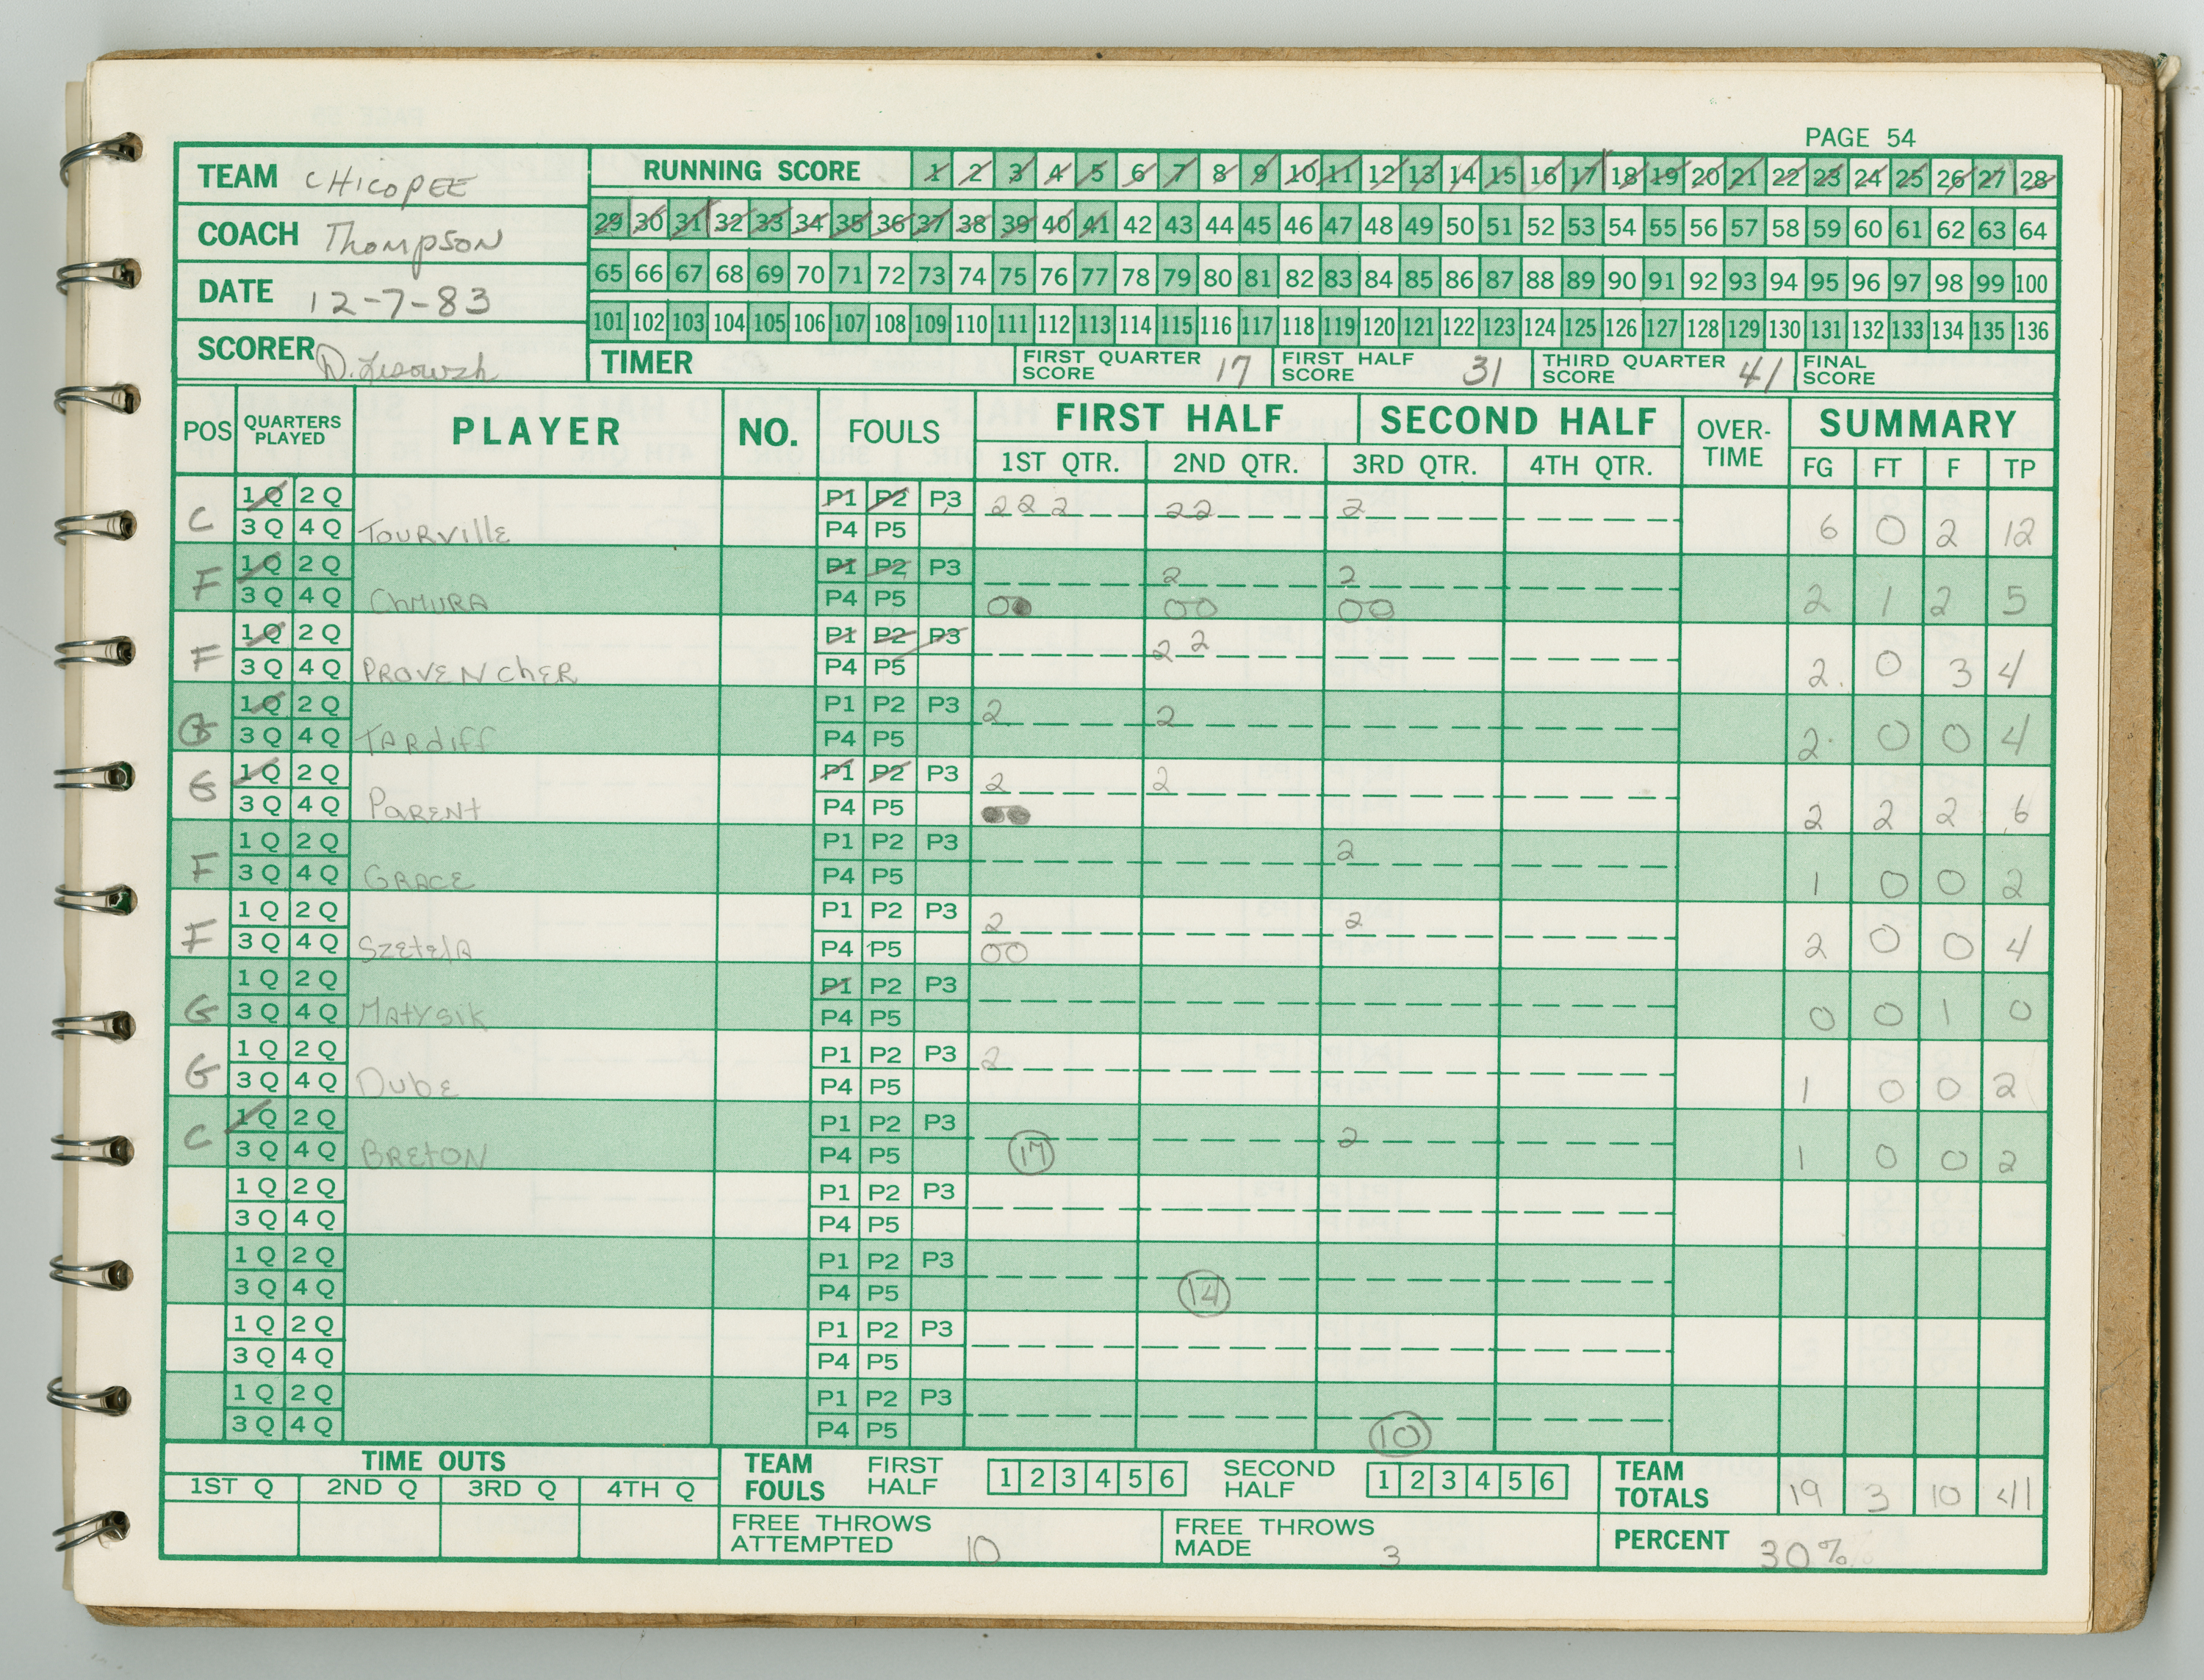 PAGE 54
TEAM CHICOPEE
COACH Thompson
DATE 12-7-83
SCORER D.
RUNNING SCORE 1 2 3 4 5 6 7 8 9 10 11 12 13 14 15 16 17 18 19 20 21 22 23 24 25 26 27 28
29 30 31 32 33 34 35 36 37 38 39 40 41 42 43 44 45 46 47 48 49 50 51 52 53 54 55 56 57 58 59 60 61 62 63 64
65 66 67 68 69 70 71 72 73 74 75 76 77 78 79 80 81 82 83 84 85 86 87 88 89 90 91 92 93 94 95 96 97 98 99 100
101 102 103 104 105 106 107 108 109 110 111 112 113 114 115 116 117 118 119 120 121 122 123 124 125 126 127 128 129 130 131 132 133 134 135 136
TIMER FIRST QUARTER SCORE 17 FIRST HALF SCORE 31 THIRD QUARTER SCORE 41 FINAL SCORE
POS QUARTERS PLAYED PLAYER NO. FOULS FIRST HALF SECOND HALF OVER-TIME SUMMARY
1ST QTR. 2ND QTR. 3RD QTR. 4TH QTR. FG FT F TP
1 Q 2 Q P1 P2 P3 2 2 2 2 2 2
C 3 Q 4 Q TOURVIllE P4 P5 6 0 2 12
1 Q 2 Q P1 P2 P3 2 2
F 3 Q 4 Q ChMURA P4 P5 00 00 00 2 1 2 5
1 Q 2 Q P1 P2 P3 2 2
F 3 Q 4 Q PROVENchER P4 P5 2 0 3 4
1 Q 2 Q P1 P2 P3 2 2
G 3 Q 4 Q TARdiff P4 P5 2 0 0 4
1 Q 2 Q P1 P2 P3 2 2
G 3 Q 4 Q PARENt P4 P5 2 2 2 6
1 Q 2 Q P1 P2 P3 2
F 3 Q 4 Q GRACE P4 P5 1 0 0 2
1 Q 2 Q P1 P2 P3 2 2
F 3 Q 4 Q SzEtElA P4 P5 00 2 0 0 4
1 Q 2 Q P1 P2 P3
G 3 Q 4 Q MAtysik P4 P5 0 0 1 0
1 Q 2 Q P1 P2 P3 2
G 3 Q 4 Q DubE P4 P5 1 0 0 2
1 Q 2 Q P1 P2 P3 2
C 3 Q 4 Q BREtON P4 P5 17 1 0 0 2
1 Q 2 Q P1 P2 P3
3 Q 4 Q P4 P5
1 Q 2 Q P1 P2 P3
3 Q 4 Q P4 P5 14
1 Q 2 Q P1 P2 P3
3 Q 4 Q P4 P5
1 Q 2 Q P1 P2 P3
3 Q 4 Q P4 P5 10
TIME OUTS
1ST Q 2ND Q 3RD Q 4TH Q
TEAM FOULS FIRST HALF 1 2 3 4 5 6 SECOND HALF 1 2 3 4 5 6
TEAM TOTALS 19 3 10 41
FREE THROWS ATTEMPTED 10 FREE THROWS MADE 3 PERCENT 30%